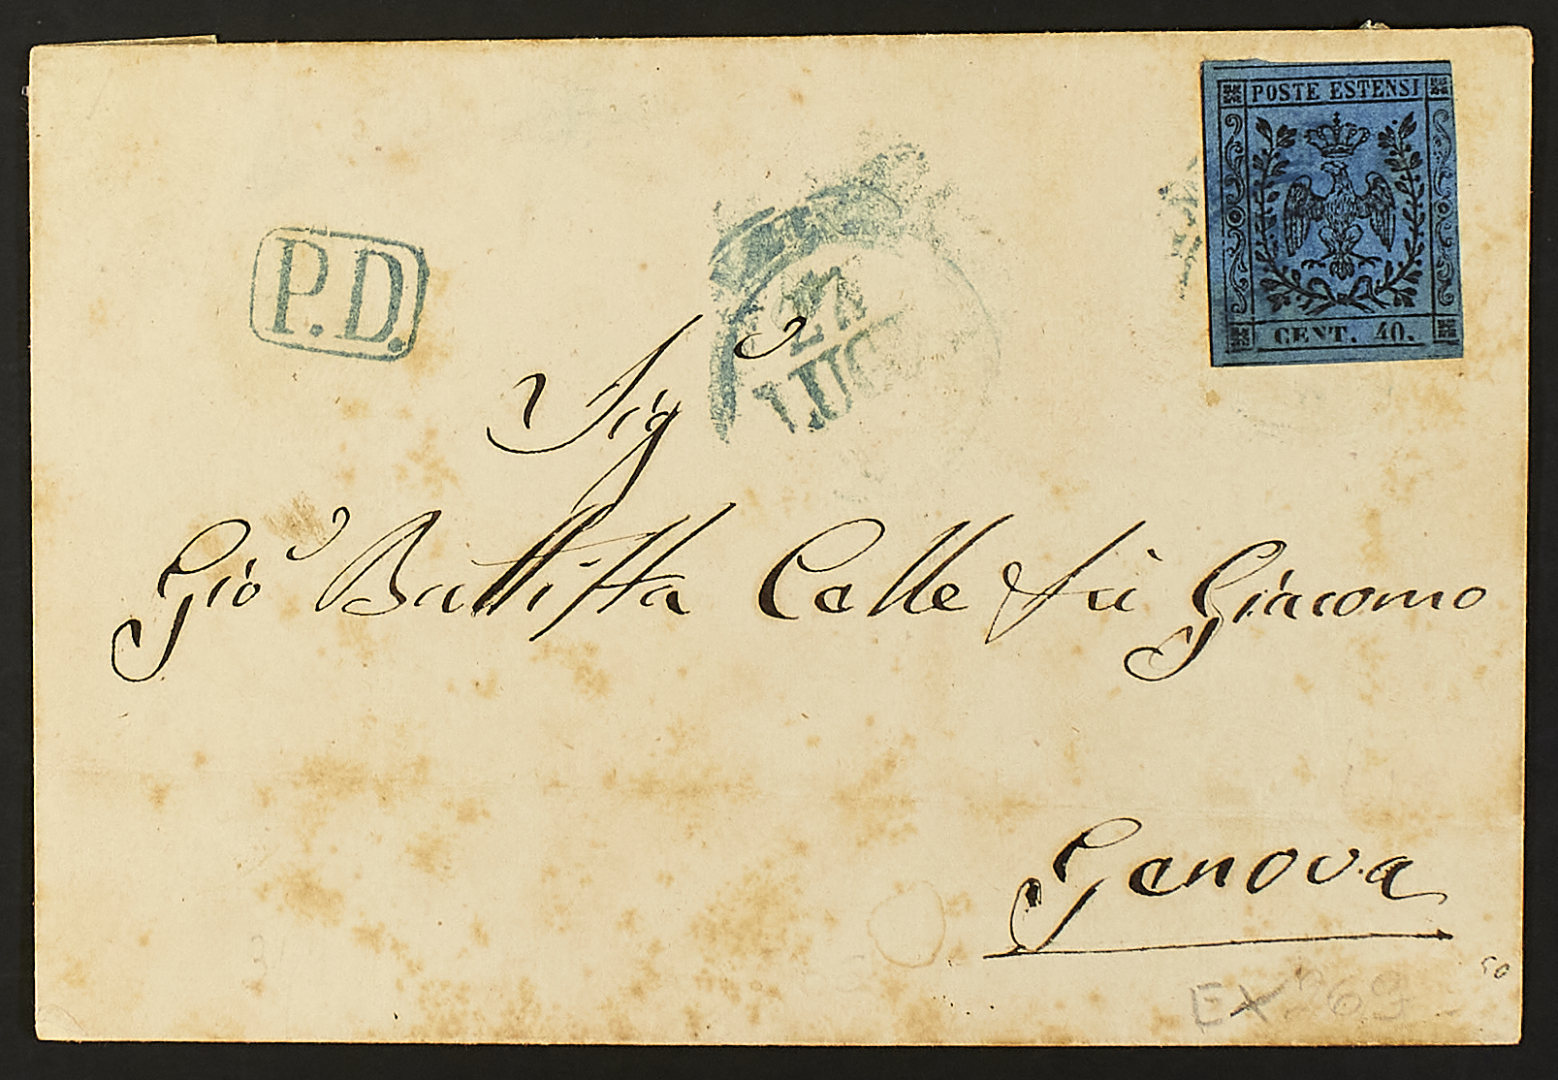 POSTE ESTENSI
CENT. 40.
P.D.
24
LUG
Sig
Gio Battista Celle fu Giacomo
Genova
50
Ex 269